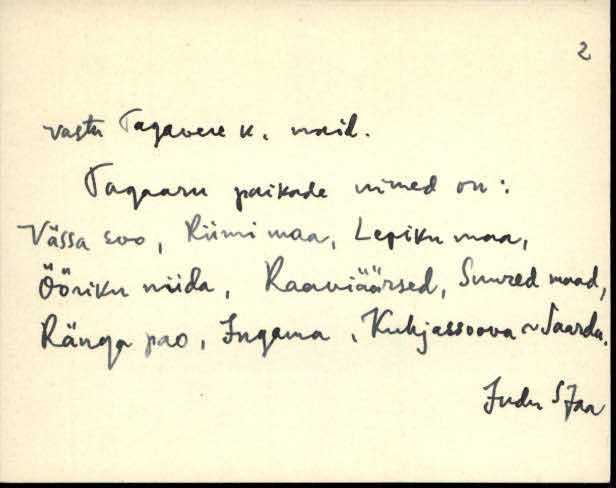 2
vastu Tagavere k. maid.
Tagaaru paikade nimed on:
Vässa soo, Riimi maa, Lepiku maa,
Ööriku niida, Raaviäärsed, Suured maad,
Ränga pao, Ingama, Kuhjassoova ~ Saardu.
Judu S Jaa